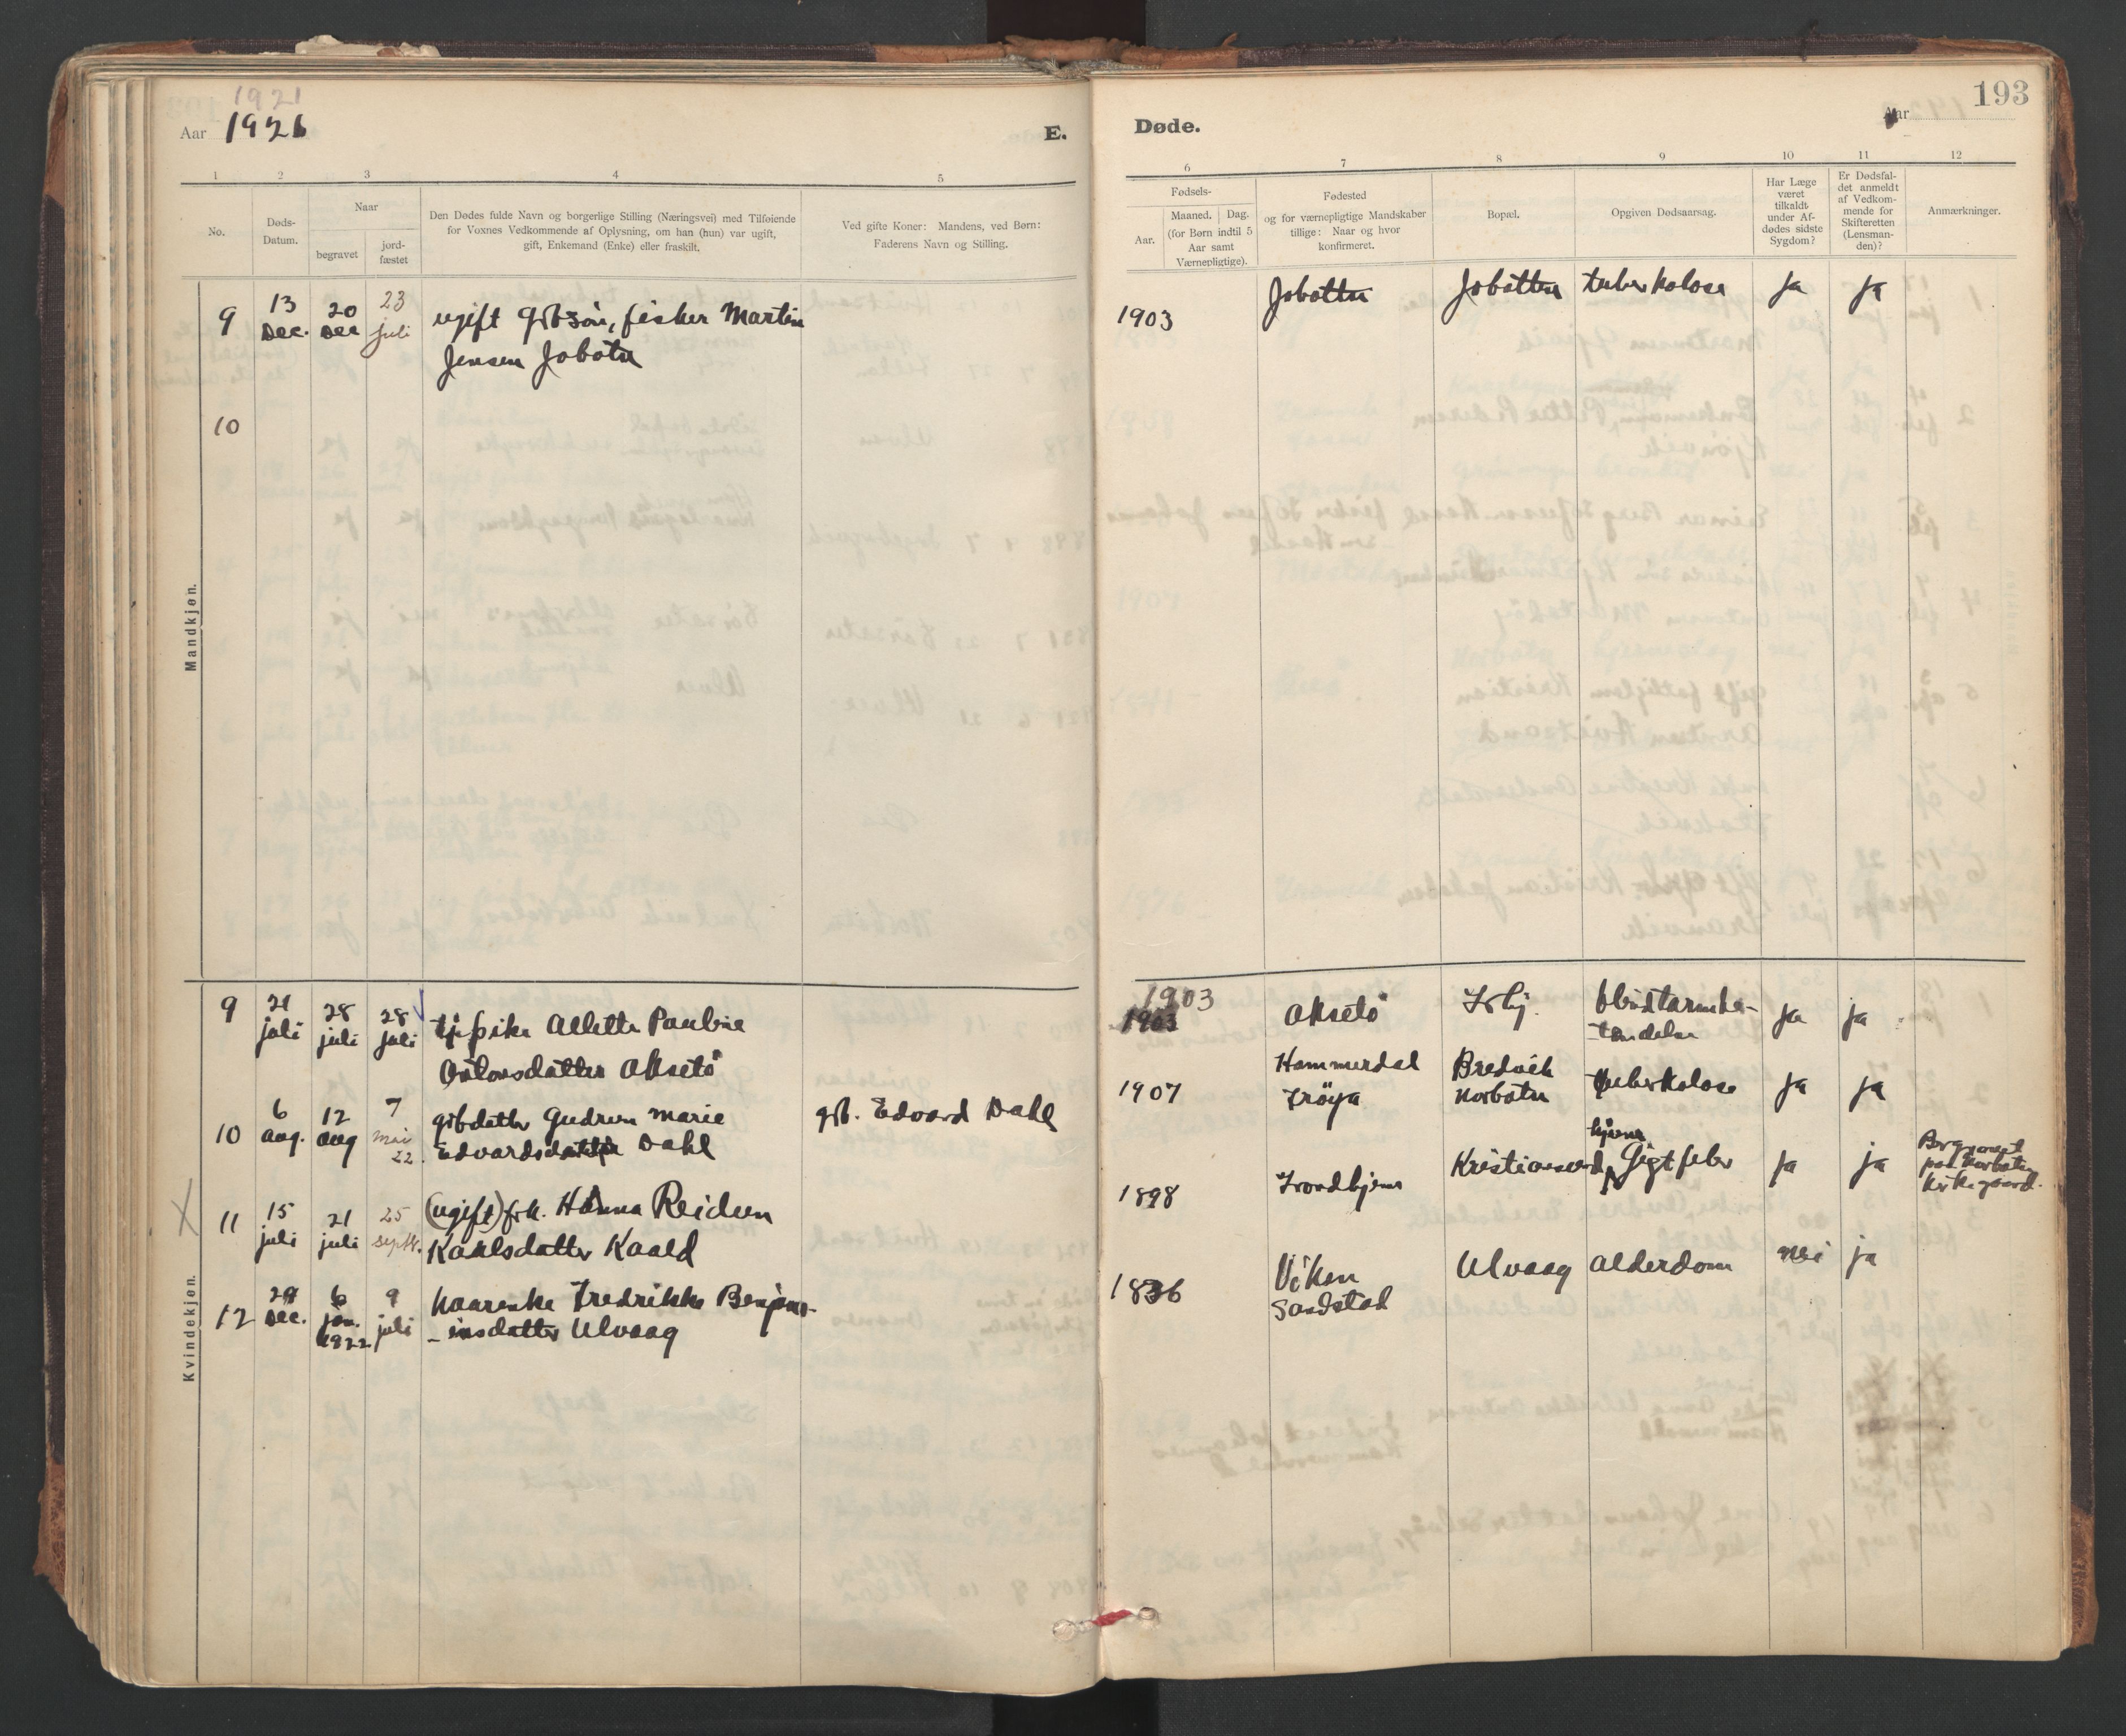 1921
Aar 1921
E.
Døde.
Aar
193
1 2 3 4 5
6 7 8 9 10 11 12
No.
Døds-
Datum.
Naar
begravet
jord-
fæstet
Den Dødes fulde Navn og borgerlige Stilling (Næringsvei) med Tilføiende
for Voxnes Vedkommende af Oplysning, om han (hun) var ugift,
gift, Enkemand (Enke) eller fraskilt.
Ved gifte Koner: Mandens, ved Børn:
Faderens Navn og Stilling.
Fødsels-
Aar.
Maaned. Dag.
(for Børn indtil 5
Aar samt
Værnepligtige).
Fødested
og for værnepligtige Mandskaber
tillige: Naar og hvor
konfirmeret.
Bopæl.
Opgiven Dødsaarsag.
Har Læge
været
tilkaldt
under Af-
dødes sidste
Sygdom?
Er Dødsfal-
det anmeldt
af Vedkom-
mende for
Skifteretten
(Lensman-
den)?
Anmærkninger.
Mandkjøn.
9 13 Dec. 20 Dec 23 juli ugift gbsön, fisker Martin
Jensen Jobotn
1903 Jobotten Jobotten tuberkolose ja ja
10
Kvindekjøn.
9 21 juli 28 juli 28 juli Allette Pauline
Aksetö
1903
1903 Aksetö blindtarmbe-
-tendelse ja ja
10 6 aug. 12 aug 7 mai 22. gbdatter Gudrun Marie
Edvardsdatter Dahl
gb. Edvard Dahl
1907 Hammerdal
Fröya
Bredvik
Norbotn
tuberkolose ja ja
11 15 juli 21 juli 25 septb. (ugift) frk. Hanna Reidun
Karlsdatter Kaald
1898 Trondhjem Kristiansund hjerne
Gigtfeber ja ja
kirkegaard.
12 29 Dec. 6 jan. 1922 9 juli Maarenka Fredrikka Benjam-
-insdatter Ulvaag
1836 Viken
Sandstad
Ulvaag Alderdom nei ja